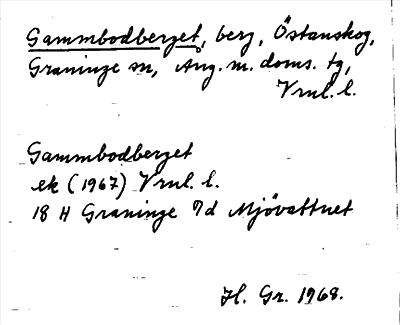 Gammbodberget, berg, Östanskog,
Graninge sn, Ång. m. doms. tg,
Vrnl. l.
Gammbodberget
ek (1967) Vrnl. l.
18 H Graninge 7d Mjövattnet
H. Gr. 1968.